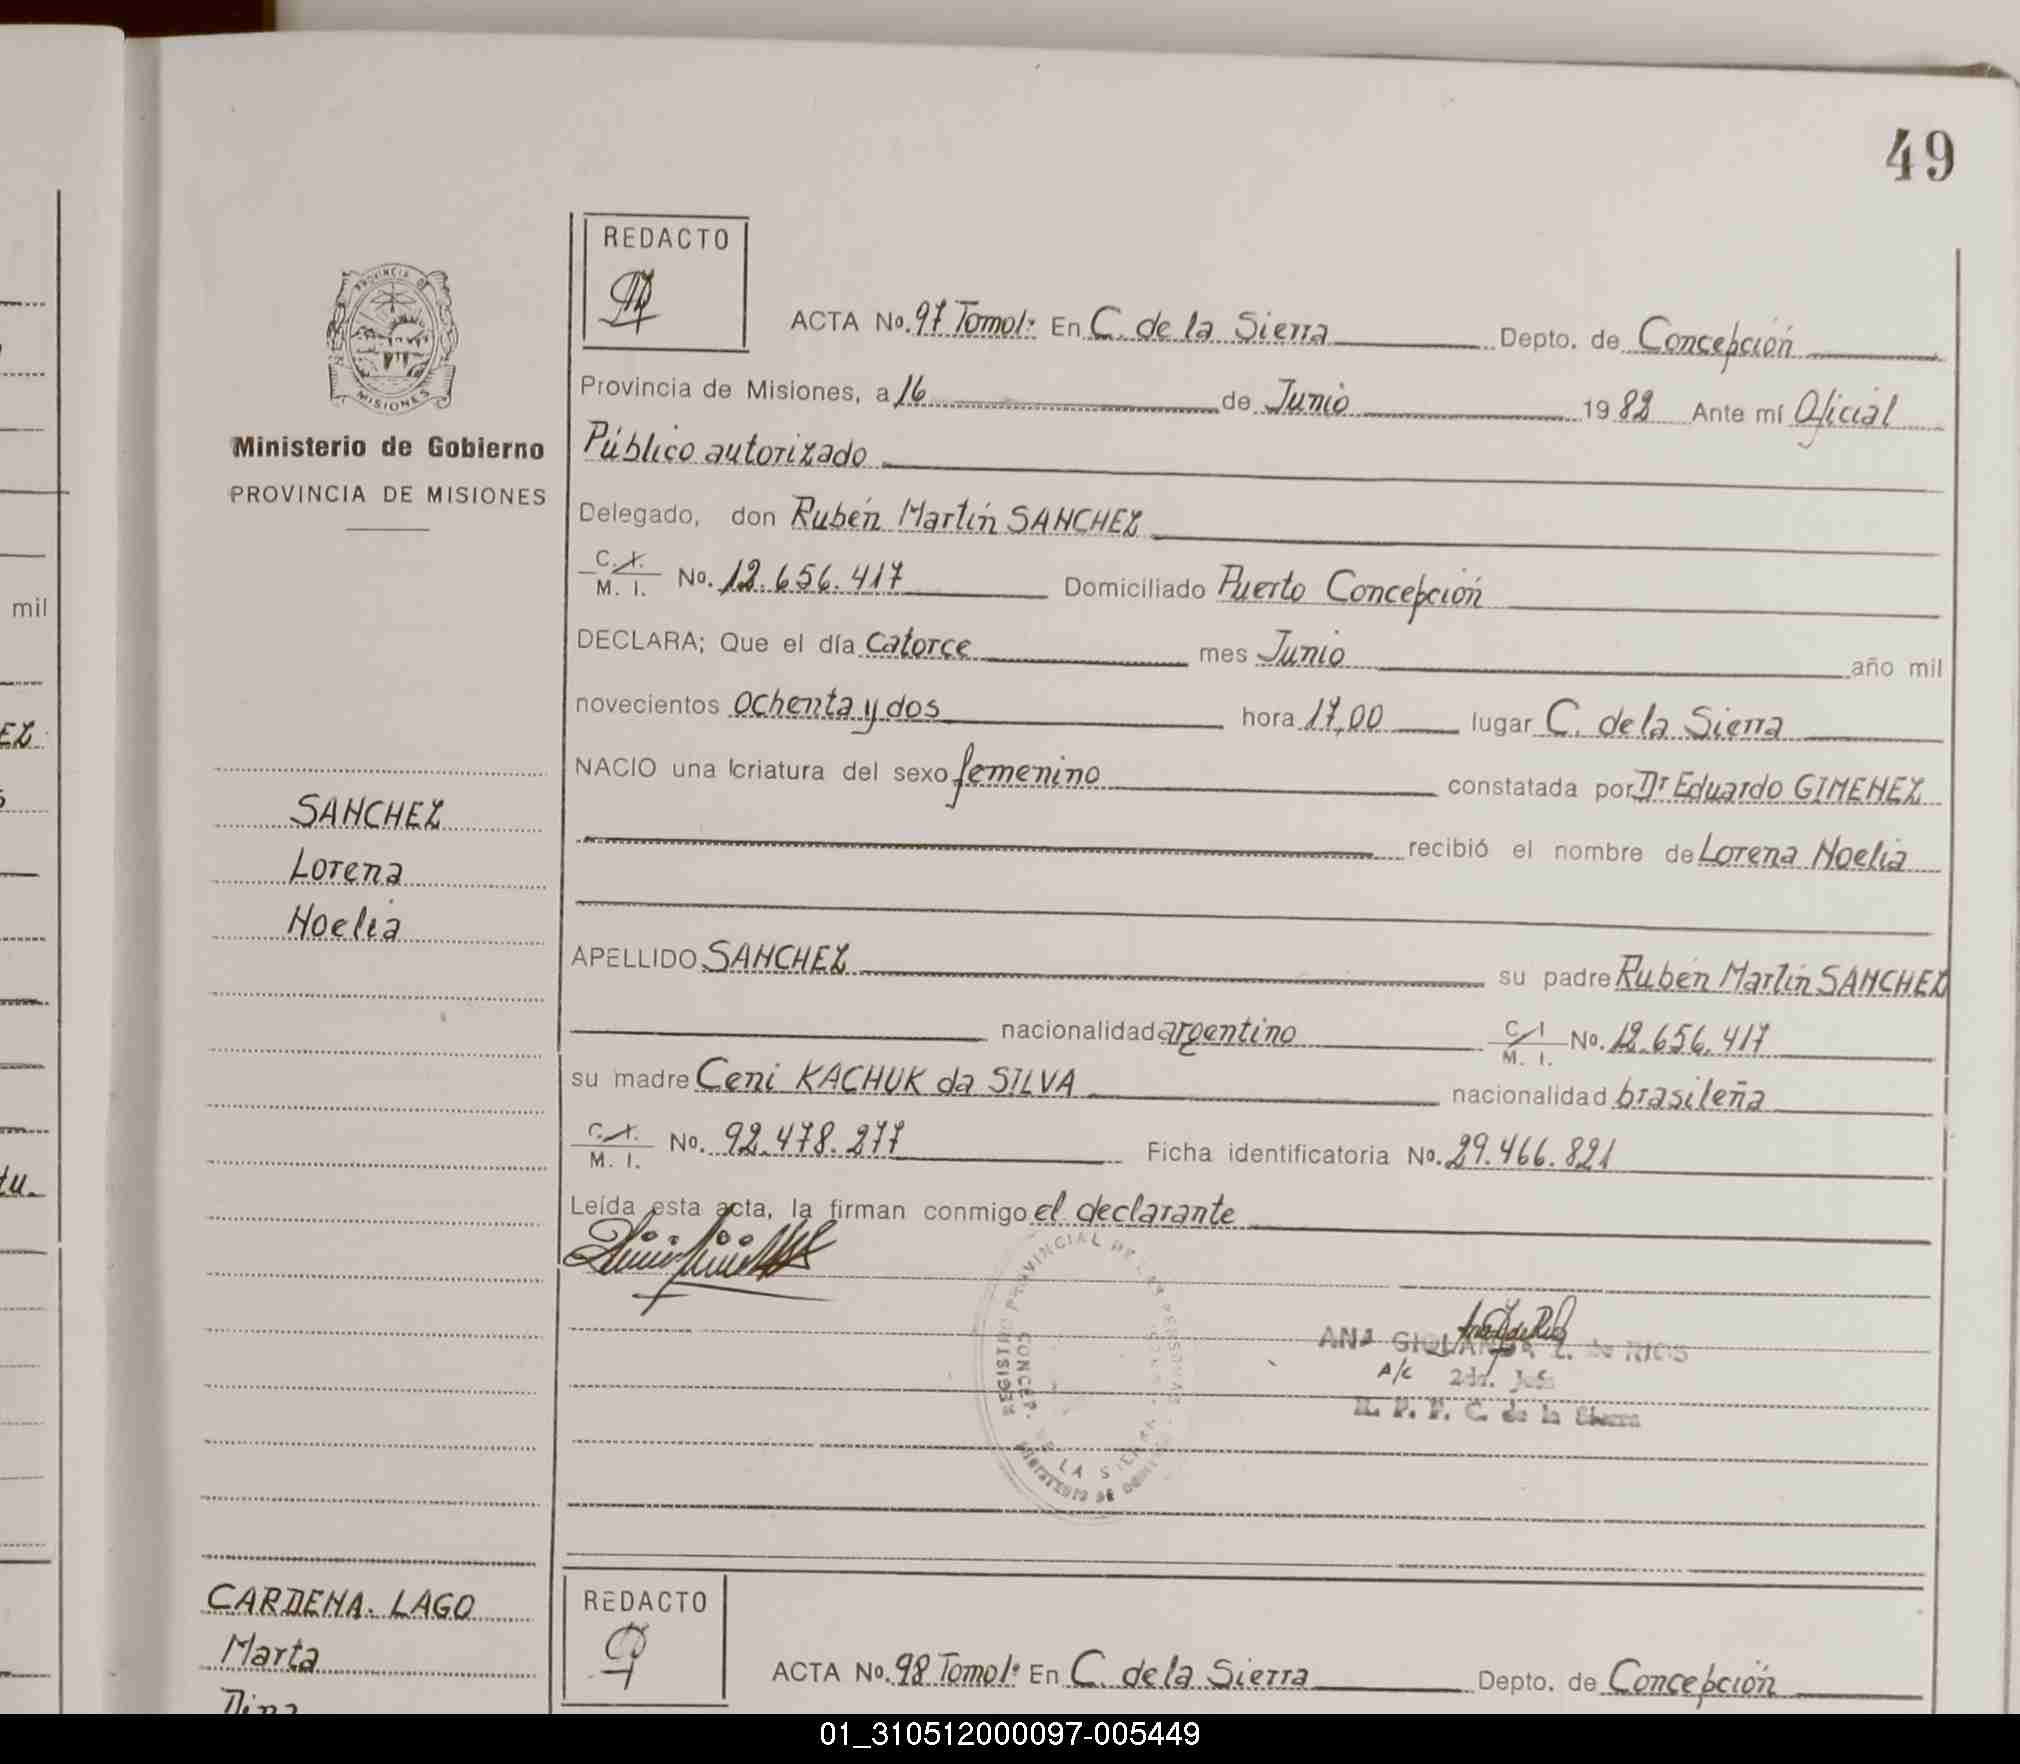 49
REDACTO
PROVINCIA DE
MISIONES
Ministerio de Gobierno
PROVINCIA DE MISIONES
ACTA No. 97 Tomo 1º En C. de la Sierra Depto. de Concepción
Provincia de Misiones, a 16 de Junio 1982 Ante mí Oficial
Público autorizado
Delegado, don Rubén Martín SANCHEZ
C. I. M. I. No. 12.656.417 Domiciliado Puerto Concepción
DECLARA; Que el día catorce mes Junio año mil
novecientos ochenta y dos hora 17,00 lugar C. de la Sierra
NACIO una criatura del sexo femenino constatada por Dr Eduardo GIMENEZ
recibió el nombre de Lorena Noelia
APELLIDO SANCHEZ su padre Rubén Martín SANCHEZ
nacionalidad argentino C I M. I. No. 12.656.417
su madre Ceni KACHUK da SILVA nacionalidad brasileña
C. I. M. I. No. 92.478.277 Ficha identificatoria No. 29.466.821
Leída esta acta, la firman conmigo el declarante
SANCHEZ
Lorena
Noelia
REGISTRO PROVINCIAL DE LAS PERSONAS
CONCEP. DE LA SIERRA
ANA L. de RIOS
A/C 2da. Jefa
R. P. P. C. de la Sierra
CARDENA. LAGO
Marta
REDACTO
ACTA No. 98 Tomo 1º En C. de la Sierra Depto. de Concepción
mil
EZ
01_310512000097-005449